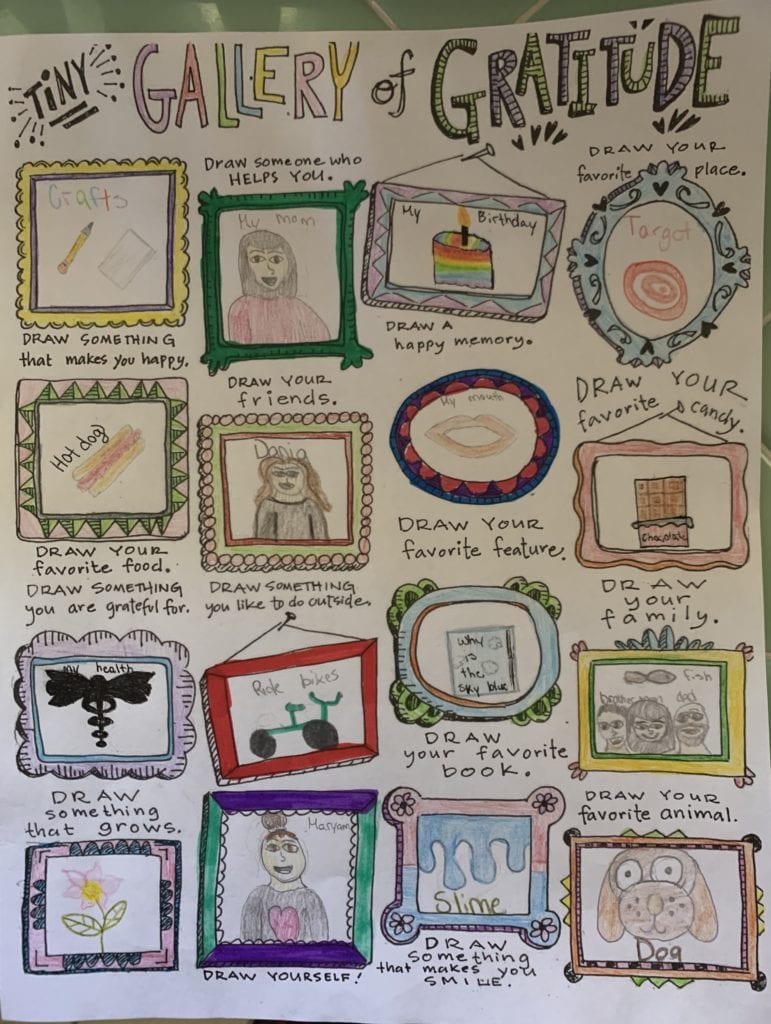 TiNY GALLERY of GRATITUDE
DRAW YOUR
favorite place.
Draw someone who
HELPS YOU.
Crafts
My mom
My Birthday
Target
DRAW SOMETHING
that makes you happy.
DRAW A
happy memory.
DRAW YOUR
friends.
DRAW YOUR
favorite candy.
Hot dog
Dania
My mouth
chocolate
DRAW YOUR
favorite food.
DRAW YOUR
favorite feature.
DRAW SOMETHING
you are grateful for.
DRAW SOMETHING
you like to do outside.
DRAW
your
family.
My health
Ride bikes
Why
is
the
sky blue
fish
brother mom dad
DRAW
your favorite
book.
DRAW
something
that grows.
DRAW YOUR
favorite animal.
Maryam
Slime
Dog
DRAW YOURSELF!
DRAW
something
that makes you
SMILE.